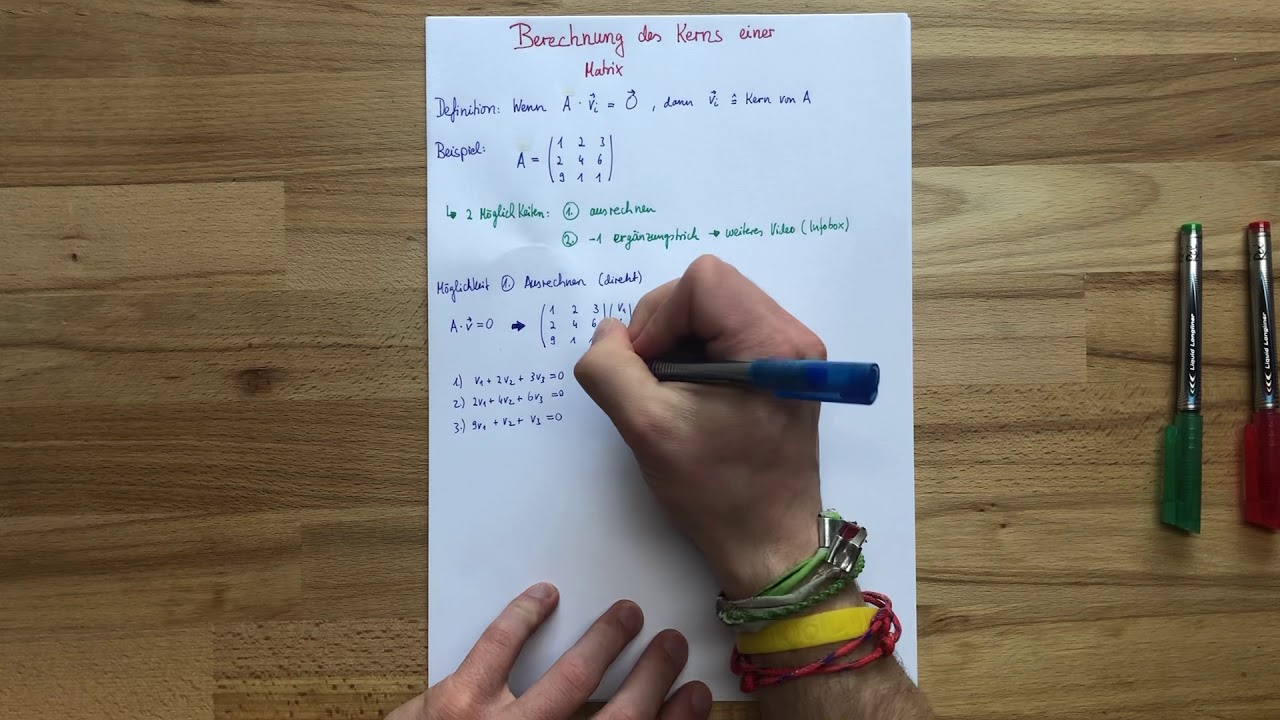 Berechnung des Kerns einer
Matrix
Definition: Wenn A · v⃗ᵢ = 0⃗ , dann v⃗ᵢ ≙ Kern von A
Beispiel: A = ( 1 2 3
2 4 6
9 1 1 )
↳ 2 Möglichkeiten: ① ausrechnen
② -1 ergänzungstrick → weiteres Video (Infobox)
Möglichkeit ① Ausrechnen (direkt)
A · v⃗ = 0 ➡ ( 1 2 3 ) ( v₁ )
2 4 6
9 1
1) v₁ + 2v₂ + 3v₃ = 0
2) 2v₁ + 4v₂ + 6v₃ = 0
3.) 9v₁ + v₂ + v₃ = 0
Liquid Longliner
Liquid Longliner